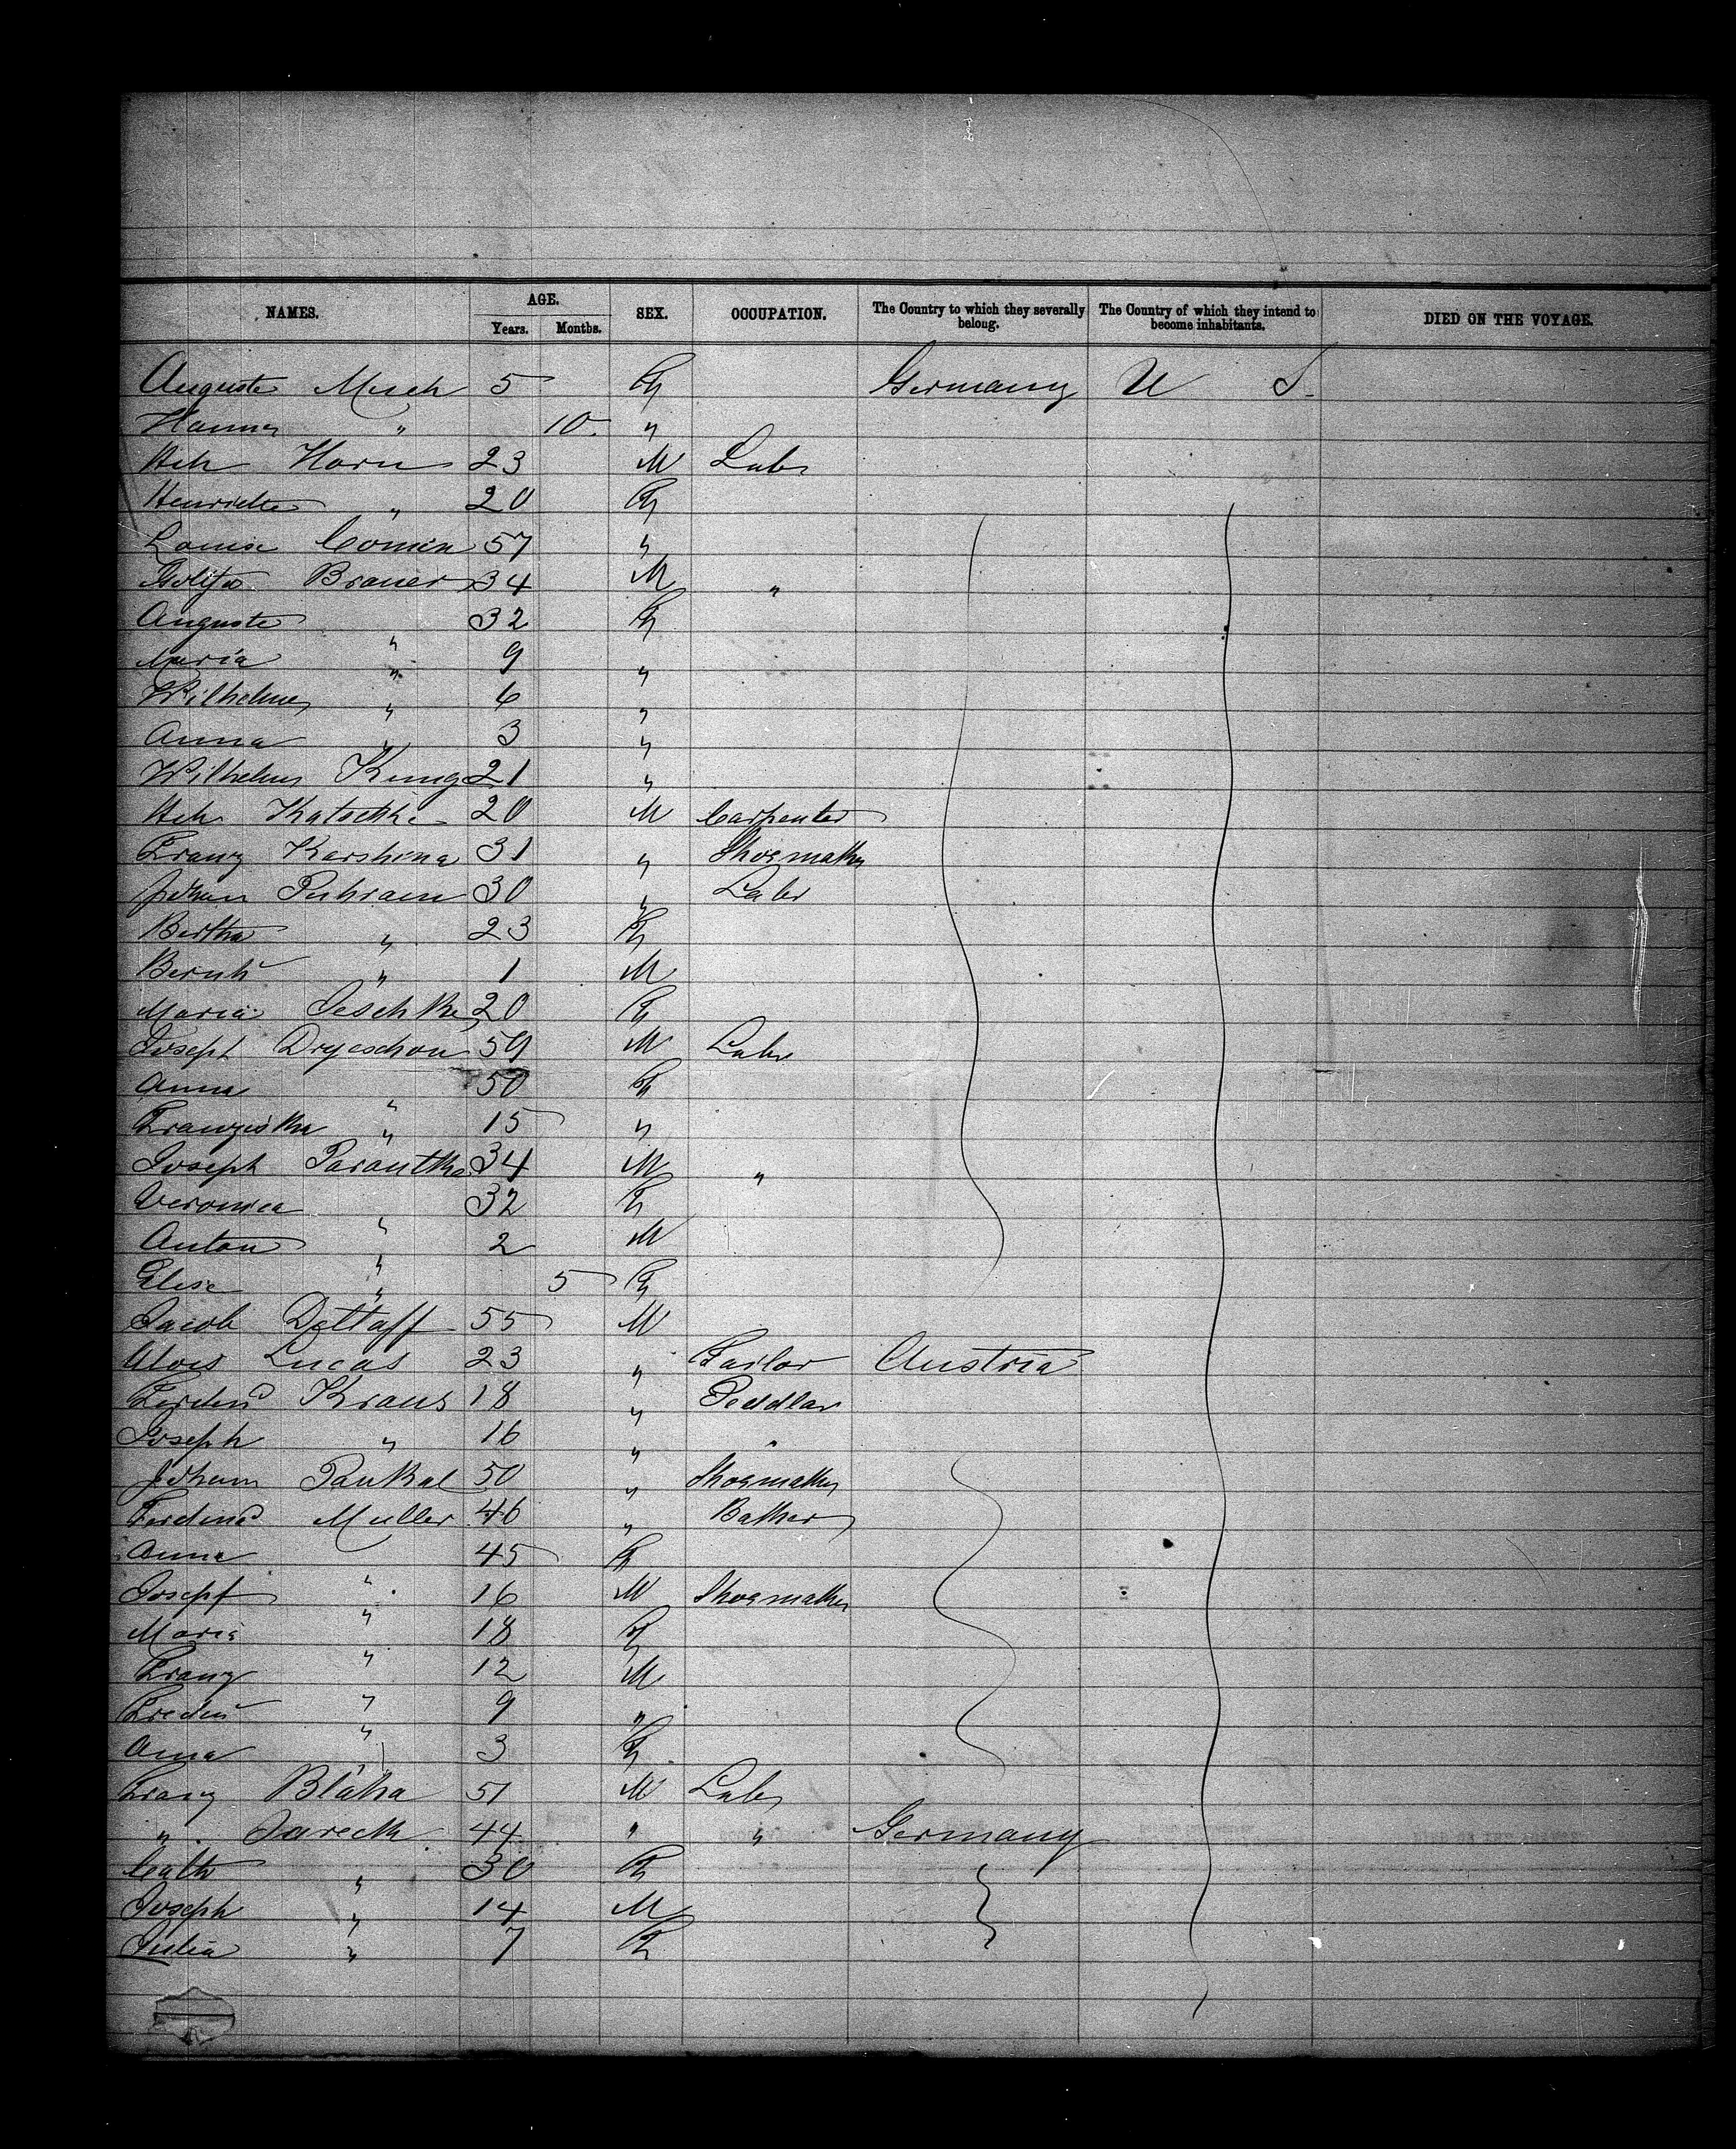 NAMES. AGE. SEX. OCCUPATION. The Country to which they severally belong. The Country of which they intend to become inhabitants. DIED ON THE VOYAGE.
Years. Months.
Auguste 5 F Germany U S.
Hanna " 10 "
Hch Horn 23 M Labr
Henriette " 20 F
Louise Comin 57 "
Brauer 34 M "
Auguste " 32 F
Maria " 9 "
Wilhelme " 6 "
Anna " 3 "
Wilhelm 21 "
Hch Katschke 20 M Carpenter
Franz Karshina 31 " Shoemaker
Johann 30 " Labr
Bertha " 23 F
Bernh " 1 M
Maria Jeschke 20 F
Joseph Dryeschou 59 M Labr
Anna " 50 F
Franziska " 15 "
Joseph Parautka 34 M "
Veronica " 32 F
Anton " 2 M
Elise " 5 F
Jacob Dettaff 55 M
Alois Lucas 23 " Tailor Austria
Ferdend Kraus 18 " Peddlar
Joseph " 16 " "
Johann Paukal 50 " Shoemaker
Ferdinad Muller 46 " Baker
Anna " 45 F
Josepf " 16 M Shoemaker
Maria " 18 F
Franz " 12 M
" 9 "
Anna " 3 F
Franz Blaha 51 M Labr
" Jareck 44 " " Germany
Cath " 30 F
Joseph " 14 M
Julia " 7 F